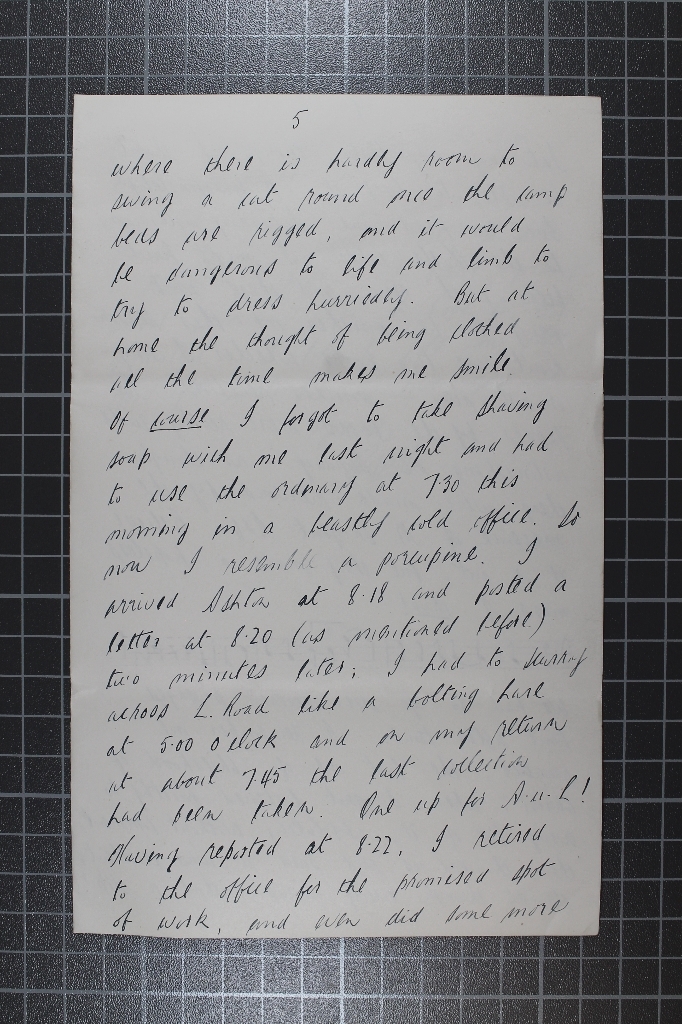 5
where there is hardly room to
swing a cat round once the camp
beds are rigged, and it would
be dangerous to life and limb to
try to dress hurriedly. But at
home the thought of being clothed
all the time makes me smile.
Of course I forgot to take shaving
soap with me last night and had
to use the ordinary at 7.30 this
morning in a beastly cold office. So
now I resemble a porcupine. I
arrived Ashton at 8.18 and posted a
letter at 8.20 (as mentioned before)
two minutes later; I had to scurry
across L. Road like a bolting hare
at 5.00 o'clock and on my return
at about 7.45 the last collection
had been taken. One up for A-u-L!
Having reported at 8.22, I retired
to the office for the promised spot
of work, and even did some more